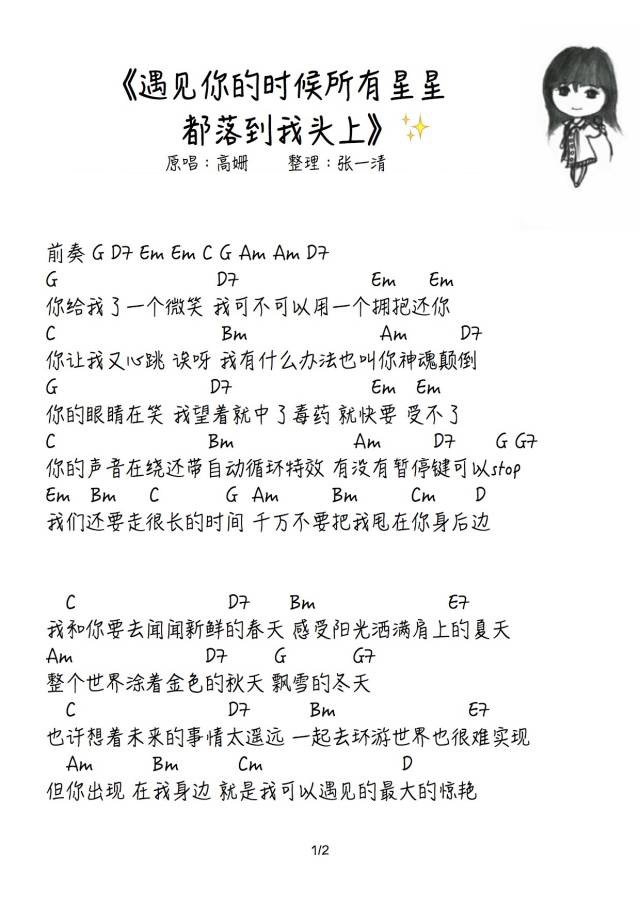 《遇见你的时候所有星星
都落到我头上》✨
原唱：高姗 整理：张一清
前奏 G D7 Em Em C G Am Am D7
G D7 Em Em
你给我了一个微笑 我可不可以用一个拥抱还你
C Bm Am D7
你让我又心跳 诶呀 我有什么办法也叫你神魂颠倒
G D7 Em Em
你的眼睛在笑 我望着就中了毒药 就快要 受不了
C Bm Am D7 G G7
你的声音在绕还带自动循环特效 有没有暂停键可以stop
Em Bm C G Am Bm Cm D
我们还要走很长的时间 千万不要把我甩在你身后边
C D7 Bm E7
我和你要去闻闻新鲜的春天 感受阳光洒满肩上的夏天
Am D7 G G7
整个世界涂着金色的秋天 飘雪的冬天
C D7 Bm E7
也许想着未来的事情太遥远 一起去环游世界也很难实现
Am Bm Cm D
但你出现 在我身边 就是我可以遇见的最大的惊艳
1/2